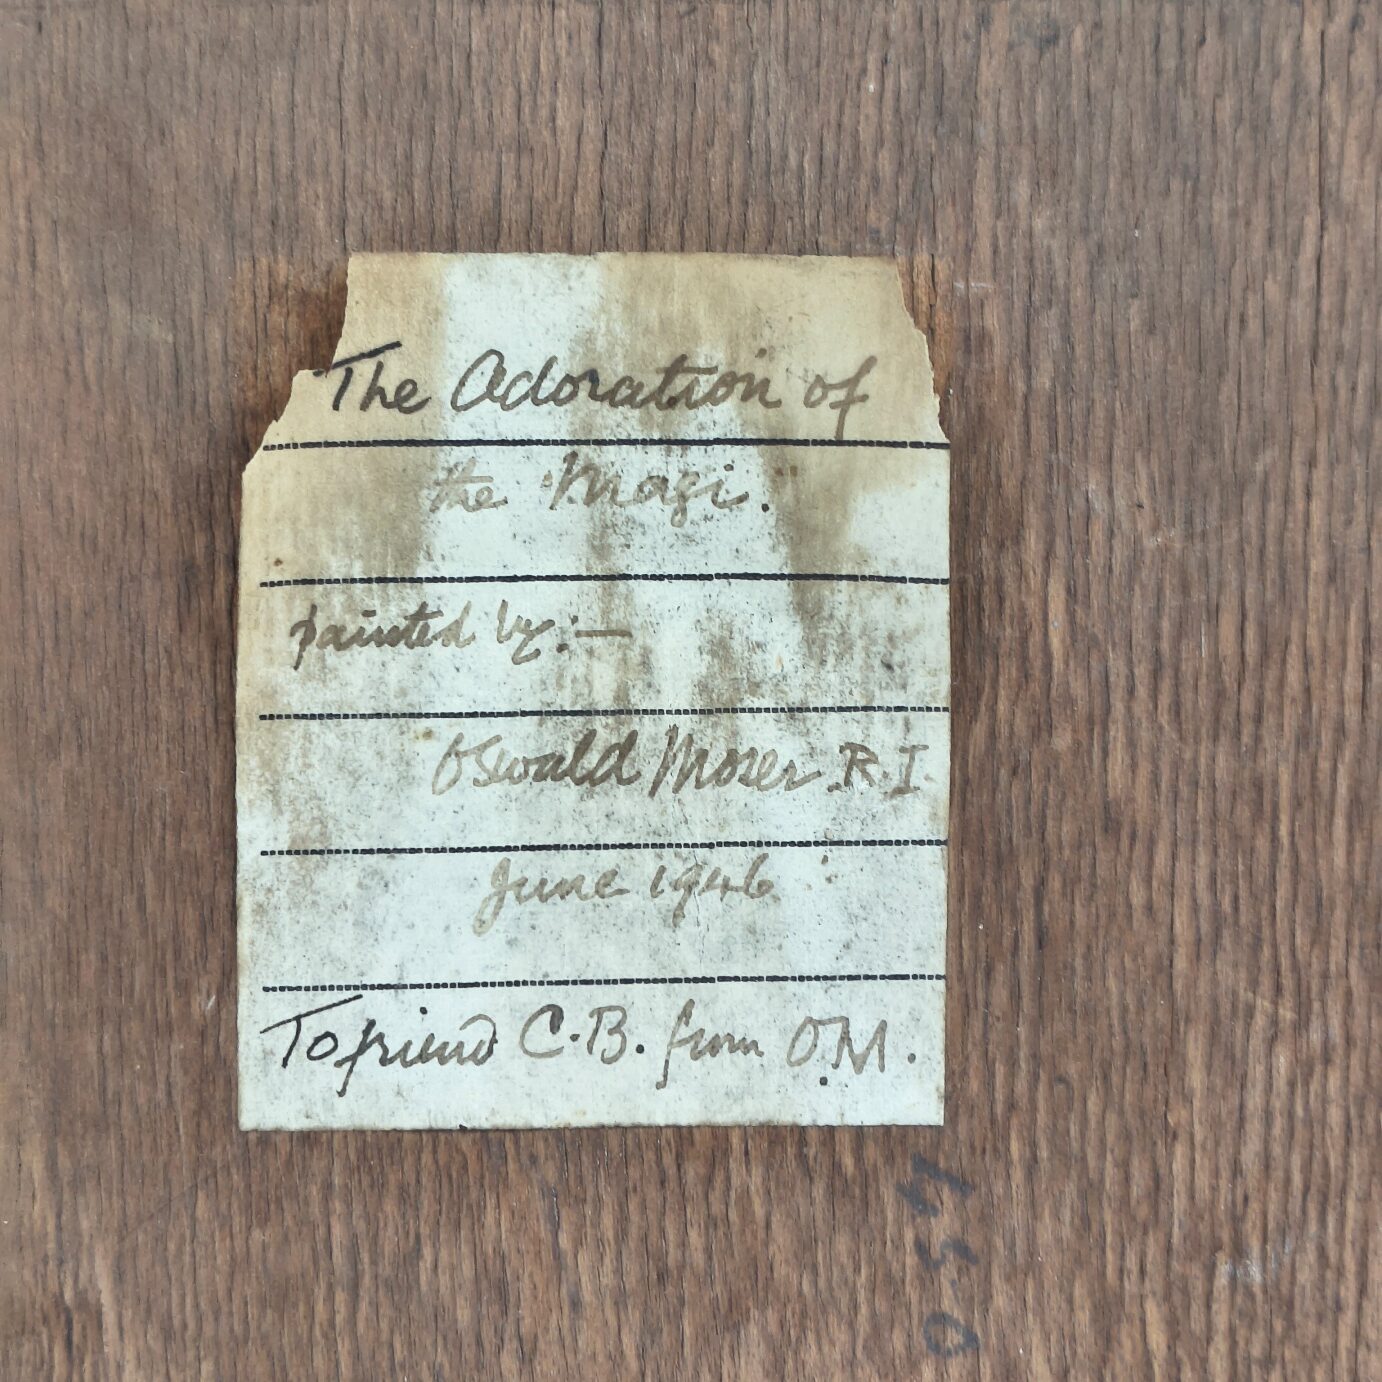 The Adoration of
the Magi.
painted by:—
Oswald Moser. R.I.
June 1946
To friend C.B. from O.M.